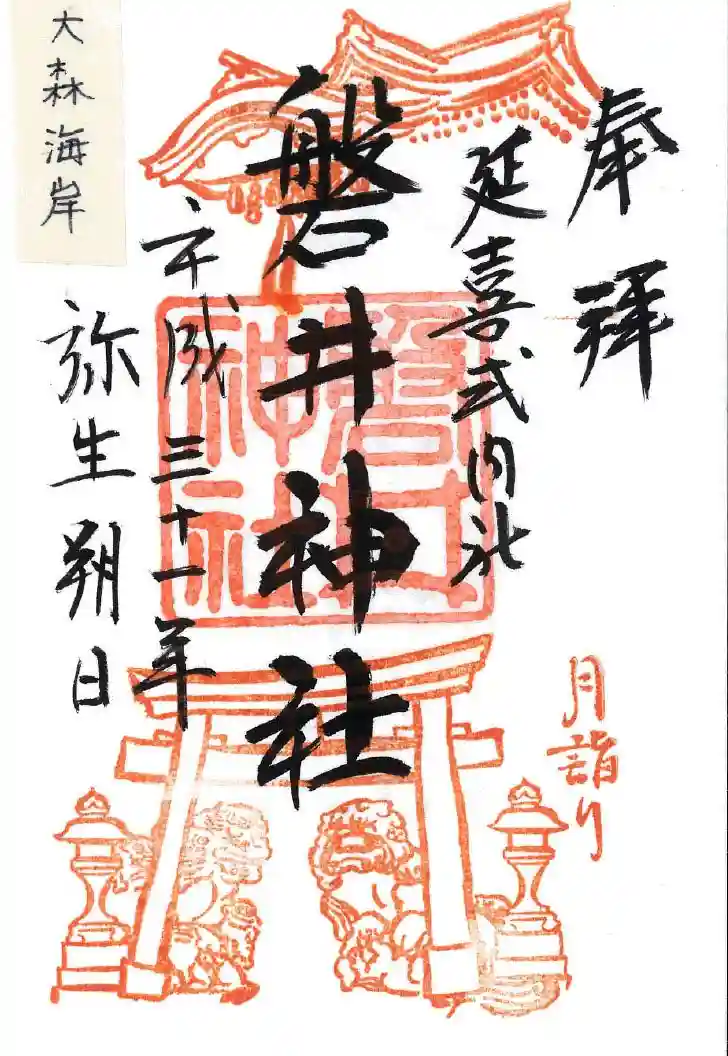 奉拝
延喜式内社
磐井神社
平成三十一年
弥生朔日
大森海岸
月詣り
磐井神社